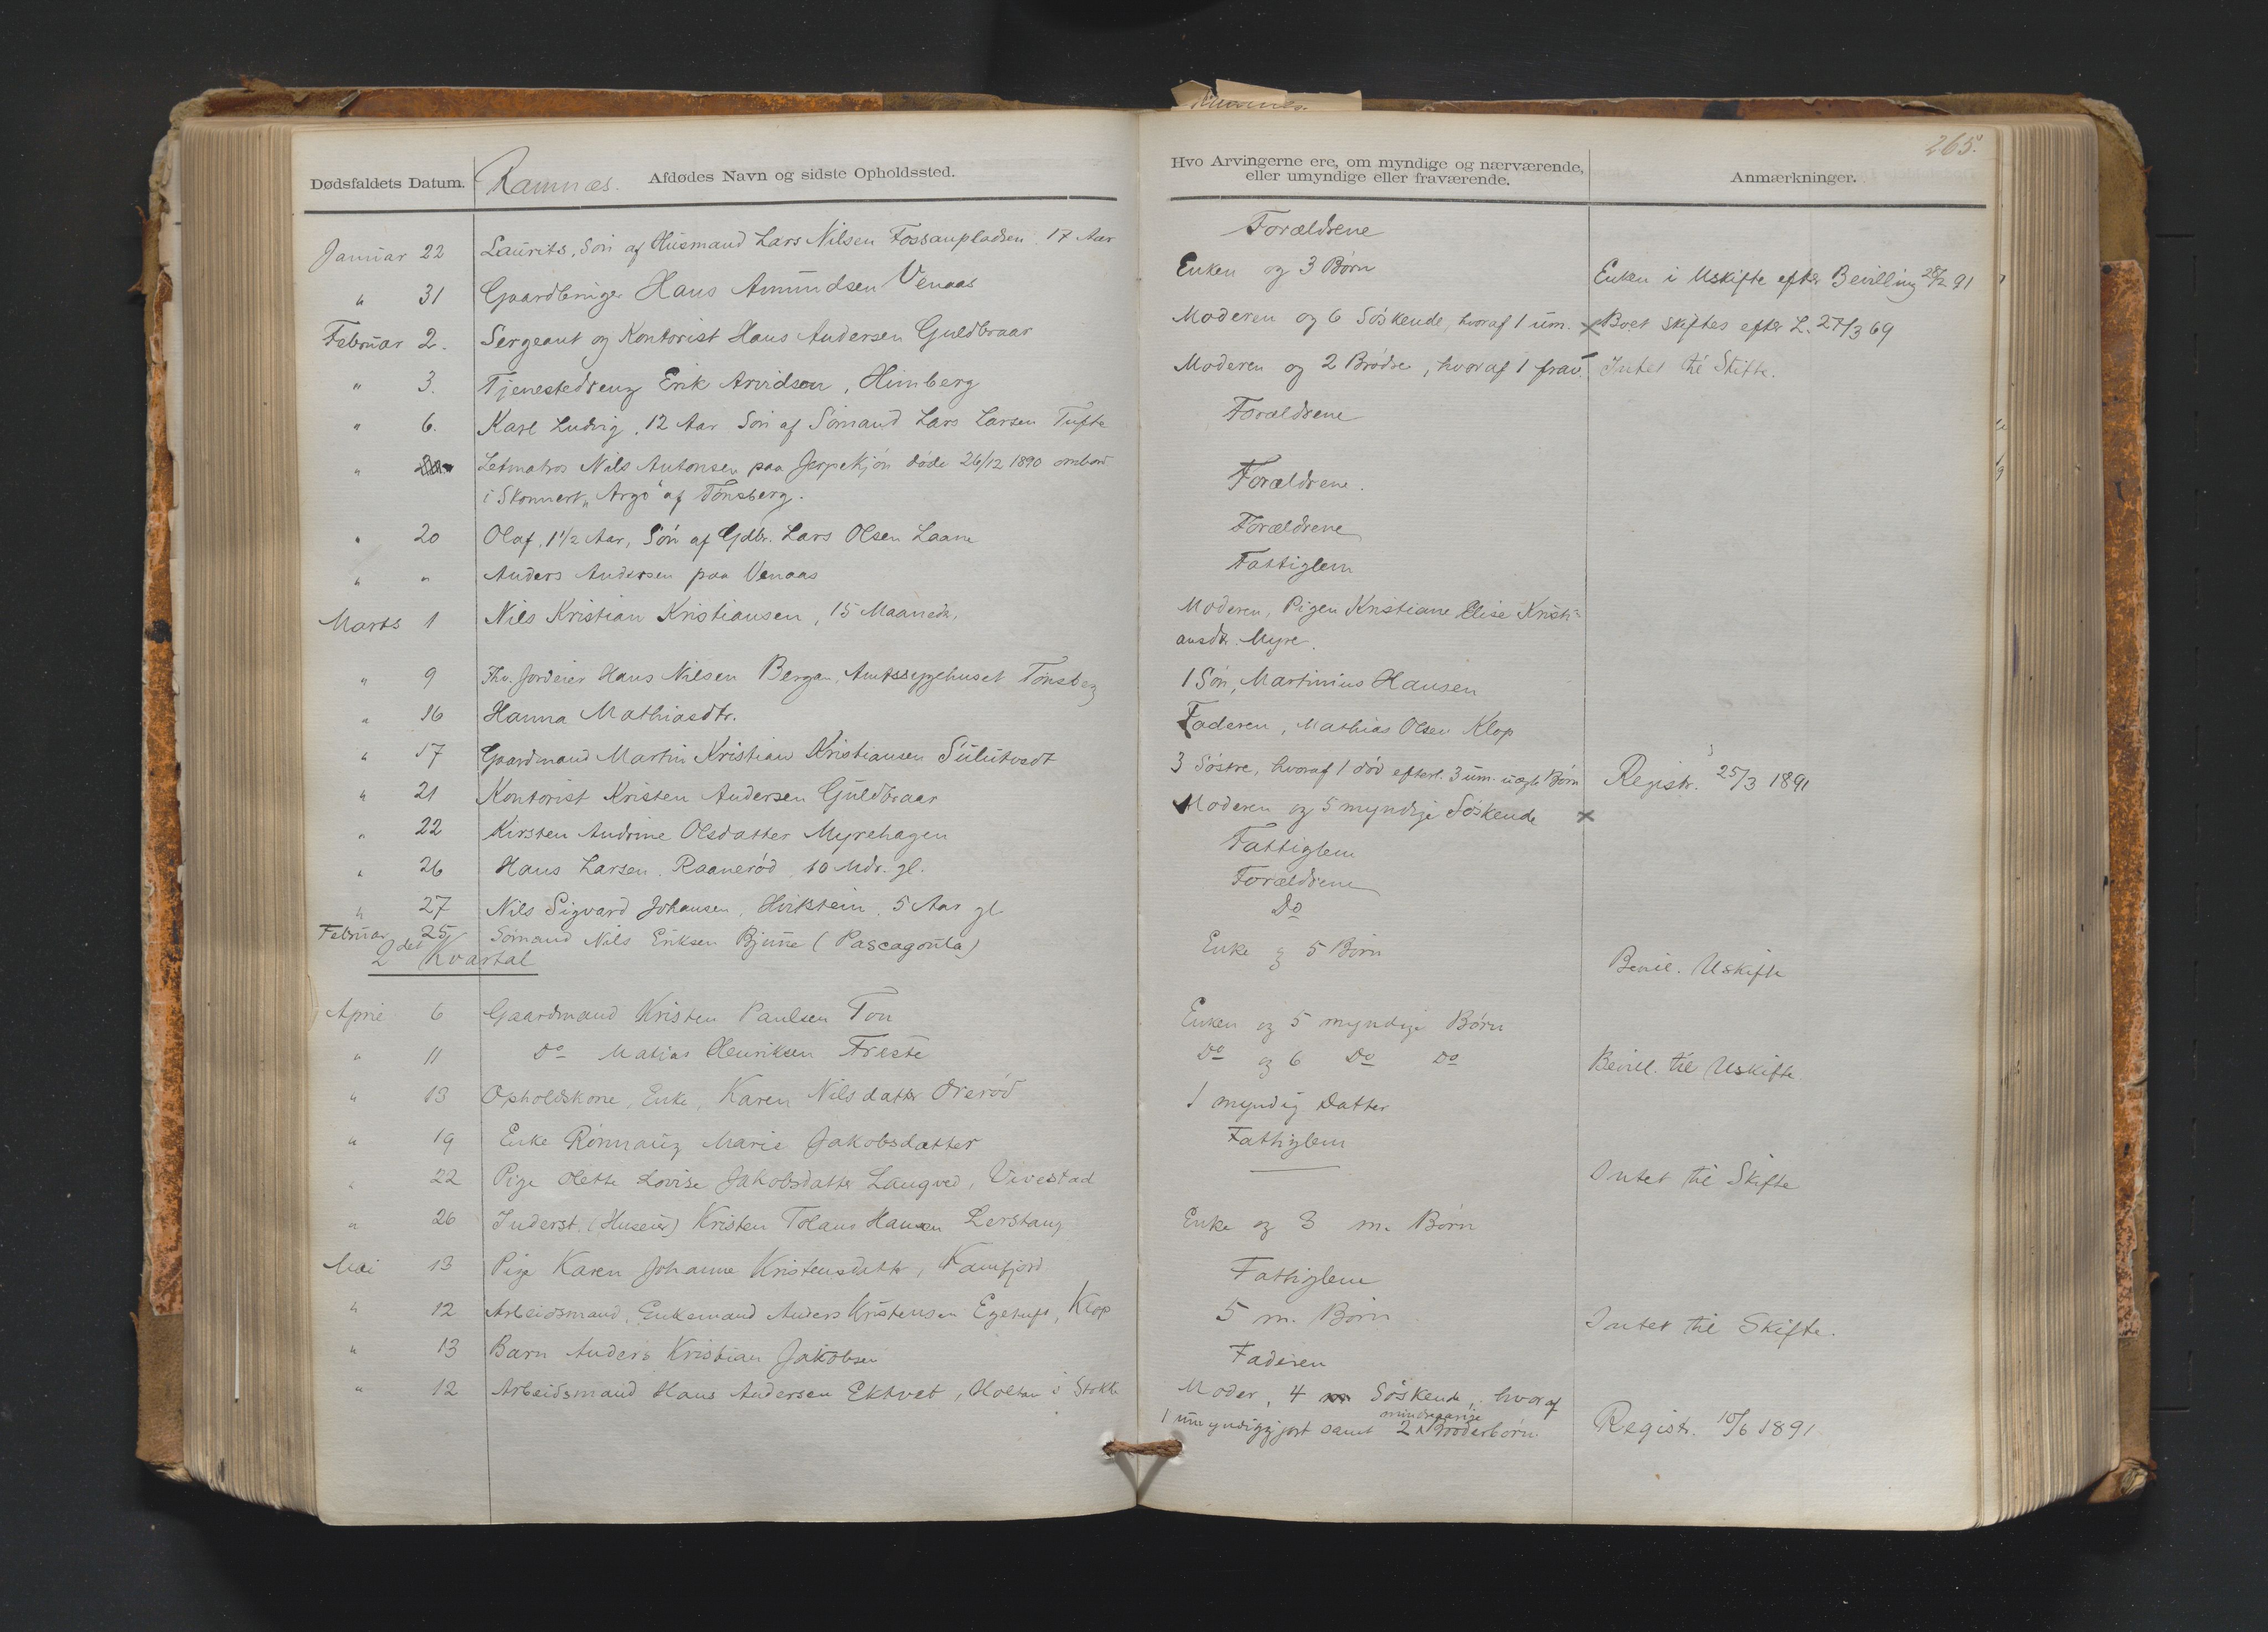 265.
Dødsfaldets Datum. Ramnæs. Afdødes Navn og sidste Opholdssted. Hvo Arvingerne ere, om myndige og nærværende, eller umyndige eller fraværende. Anmærkninger.
Januar 22 Laurits, Søn af Husmand Lars Nilsen Fossanpladsen 17 Aar Forældrene
" 31 Gaardbruger Hans Amundsen Venaas Enken og 3 Børn Enken i Uskifte efter Bevilling 28/2 91
Februar 2. Sergeant og Kontorist Hans Andersen Guldbraar Moderen og 6 Søskende, hvoraf 1 um. x Boet skiftes efter L. 27/3 69
" 3. Tjenestedreng Erik Arvidsen, Himberg Moderen og 2 Brødre, hvoraf 1 frav. Intet til Skifte.
" 6. Karl Ludvig, 12 Aar Søn af Sømand Lars Larsen Tufte Forældrene
" Letmatros Nils Antonsen paa Jerpekjøn døde 26/12 1890 ombord
i Skonnert "Argo" af Tønsberg. Forældrene.
" 20 Olaf, 1 1/2 Aar, Søn af Gdbr. Lars Olsen Laane Forældrene
" " Anders Andersen paa Venaas Fattiglem
Marts 1 Nils Kristian Kristiansen, 15 Maaneder. Moderen, Pigen Kristiane Elise Kristi-
ansdtr. Myre.
" 9 Fhv. Jordeier Hans Nilsen Bergan, Amtssygehuset Tønsberg 1 Søn, Martinius Hansen
" 16 Hanna Mathiasdtr. Faderen, Mathias Olsen Klop
" 17 Gaardmand Martin Kristian Kristiansen Sulutvedt 3 Søstre, hvoraf 1 død efterl. 3 um. uægte Børn Registr. 25/3 1891
" 21 Kontorist Kristen Andersen Guldbraar Moderen og 5 myndige Søskende x
" 22 Kirsten Andrine Olsdatter Myrehagen Fattiglem
" 26 Hans Larsen Raanerød, 10 Mdr. gl. Forældrene
" 27 Nils Sigvard Johansen, Hvitstein, 5 Aar gl. Do
Februar 25 Sømand Nils Eriksen Bjune (Pascagoula) Enke og 5 Børn Bevil. Uskifte
2det Kvartal
April 6 Gaardmand Kristen Paulsen Ton Enken og 5 myndige Børn
" 11 Do Matias Henriksen Freste Do og 6 Do Do Bevill. til Uskifte
" 13 Opholdskone, Enke, Karen Nilsdatter Orerød 1 myndig Datter
" 19 Enke Rønnaug Marie Jakobsdatter Fattiglem
" 22 Pige Olette Lovise Jakobsdatter Langved, Vivestad — Intet til Skifte
" 26 Inderst (Huseier) Kristen Tolans Hansen Lerstang Enke og 3 m. Børn
Mai 13 Pige Karen Johanne Kristensdatter, Kamfjord Fattiglem
" 12 Arbeidsmand, Enkemand Anders Kristensen Egetuft, Klop 5 m. Børn Intet til Skifte.
" 13 Barn Anders Kristian Jakobsen Faderen
" 12 Arbeidsmand Hans Andersen Ektvet, Holtan i Stokke Moder, 4 Søskende, hvoraf
1 umyndiggjort samt 2 mindreaarige Broderbørn Registr. 10/6 1891